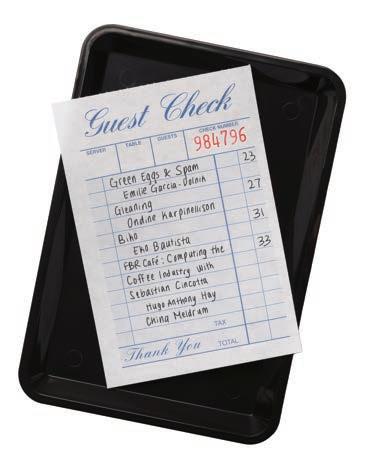 Guest Check
SERVER TABLE GUESTS CHECK NUMBER
984796
Green Eggs & Spam 23
Emilie Garcia-Dolnik
Gleaning 27
Ondine Karpinellison
Biho 31
Eko Bautista
FBR Café: Computing the 33
Coffee Industry with
Sebastian Cincotta
Hugo Anthony Hay
China Meldrum
TAX
Thank You TOTAL